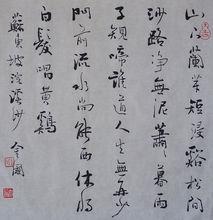 山下蘭芽短浸谿松間
沙路淨無泥蕭蕭暮雨
子規啼誰道人生無再少
門前流水尚能西休將
白髮唱黃鷄
蘇東坡浣溪沙